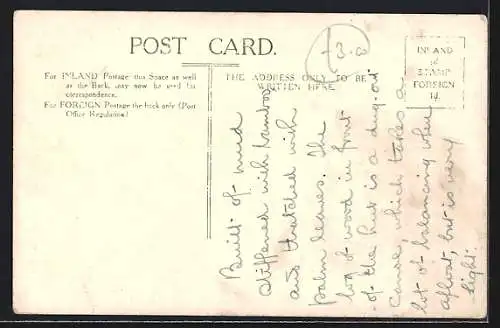 POST CARD.
For INLAND Postage this Space as well
as the Back, may now be used for
correspondence.
For FOREIGN Postage the back only (Post
Office Regulation)
THE ADDRESS ONLY TO BE
WRITTEN HERE.
INLAND
½d
STAMP
FOREIGN
1d.
Built of mud
stiffened with bamboo
and thatched with
palm leaves. The
log of wood in front
of the hut is a dug-out
canoe, which takes a
lot of balancing when
afloat, but is very
light.